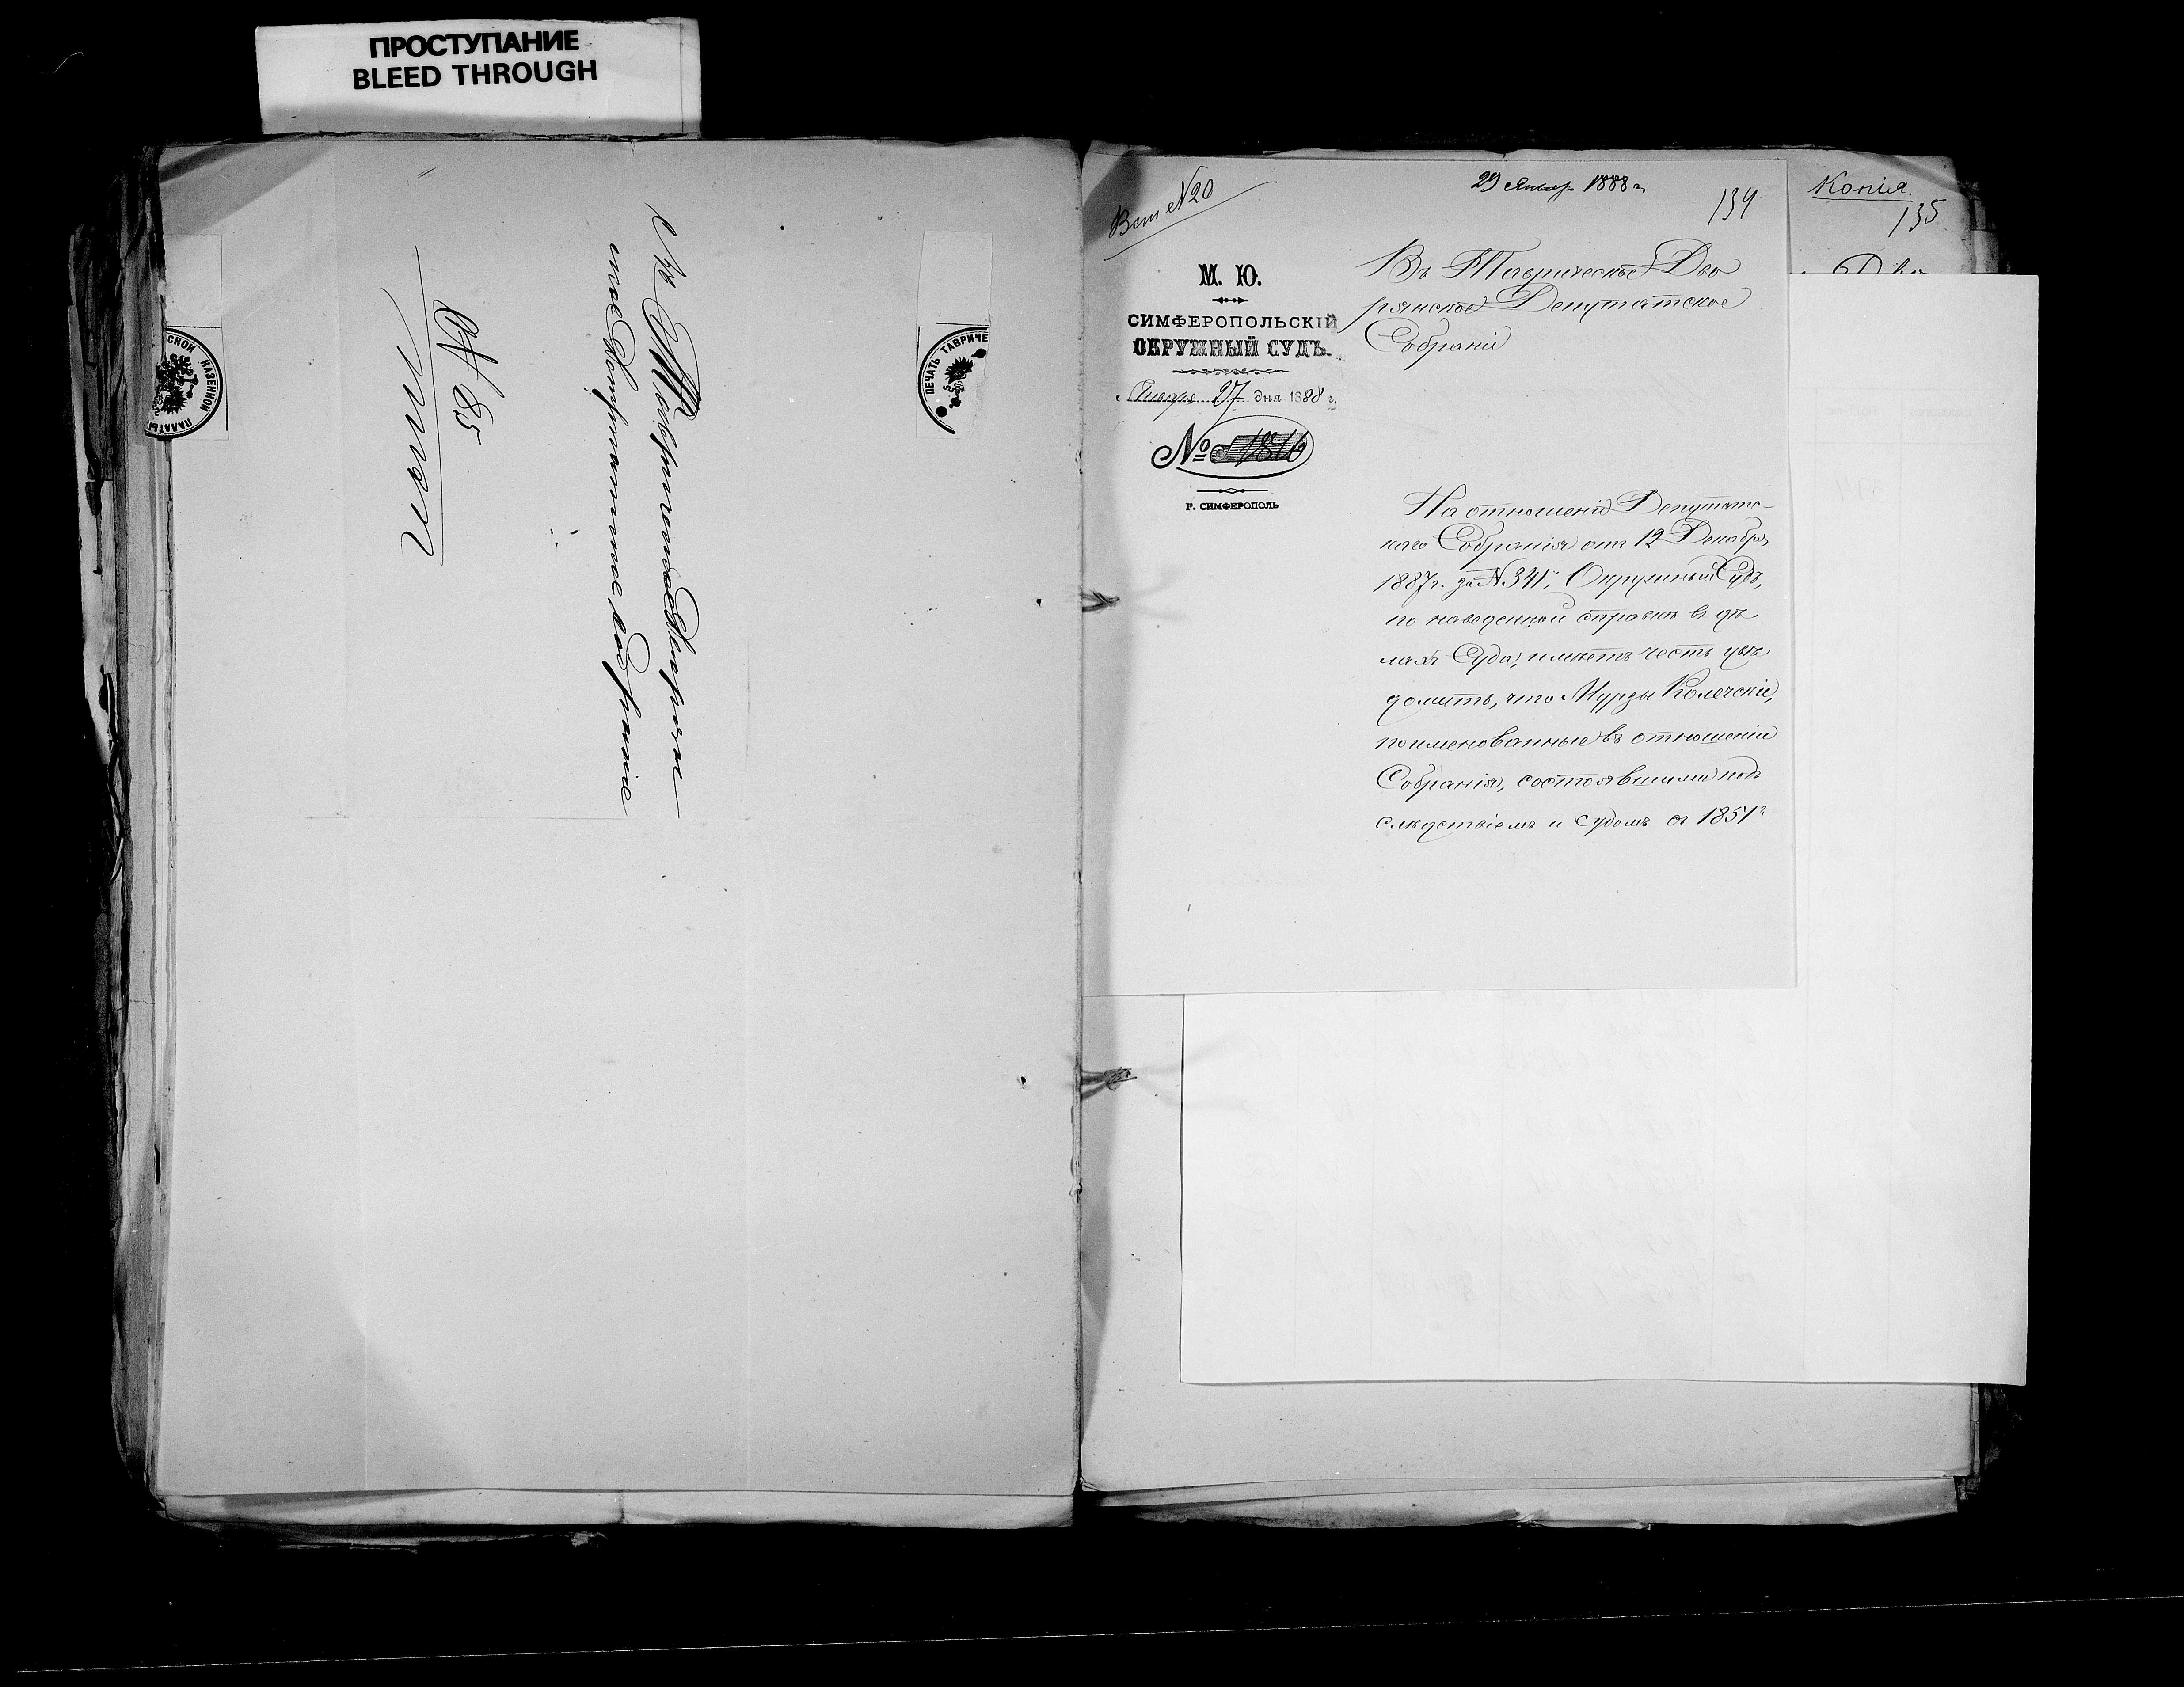 ПРОСТУПАНИЕ
BLEED THROUGH
Въ Таврическое Дворян
ское Депутатское собраніе
№ 85
СКОЙ КАЗЕННОЙ ПАЛАТЫ
ПЕЧАТЬ ТАВРИЧЕ
Вст №20
29 Январ 1888 г.
134
Копія.
135
М. Ю.
СИМФЕРОПОЛЬСКІЙ
ОКРУЖНЫЙ СУДЪ.
Января 27 дня 1888 г.
№ 1816
Г. СИМФЕРОПОЛЬ
Въ Таврическое Дво
рянское Депутатское
Собраніе
На отношеніе Депутатс-
каго Собранія отъ 12 Декабря
1887 г. за №341, Окружный Судъ,
по наведенной справкѣ въ дѣ
лахъ Суда, имѣетъ честь увѣ
домить, что Мурзы Колечскіе,
поименованные въ отношеніи
Собранія, состоявшими подъ
слѣдствіемъ и судомъ съ 1851 г